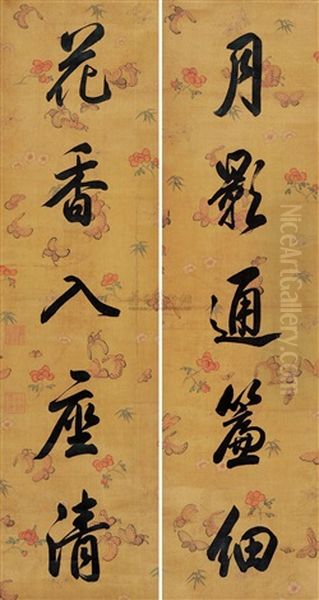 月影通簾細
花香入座清
NiceArtGallery.com